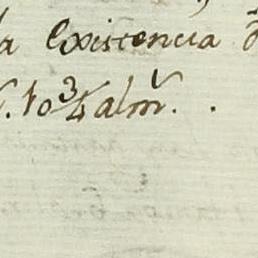 la Existencia d
10¾ almˢ. .